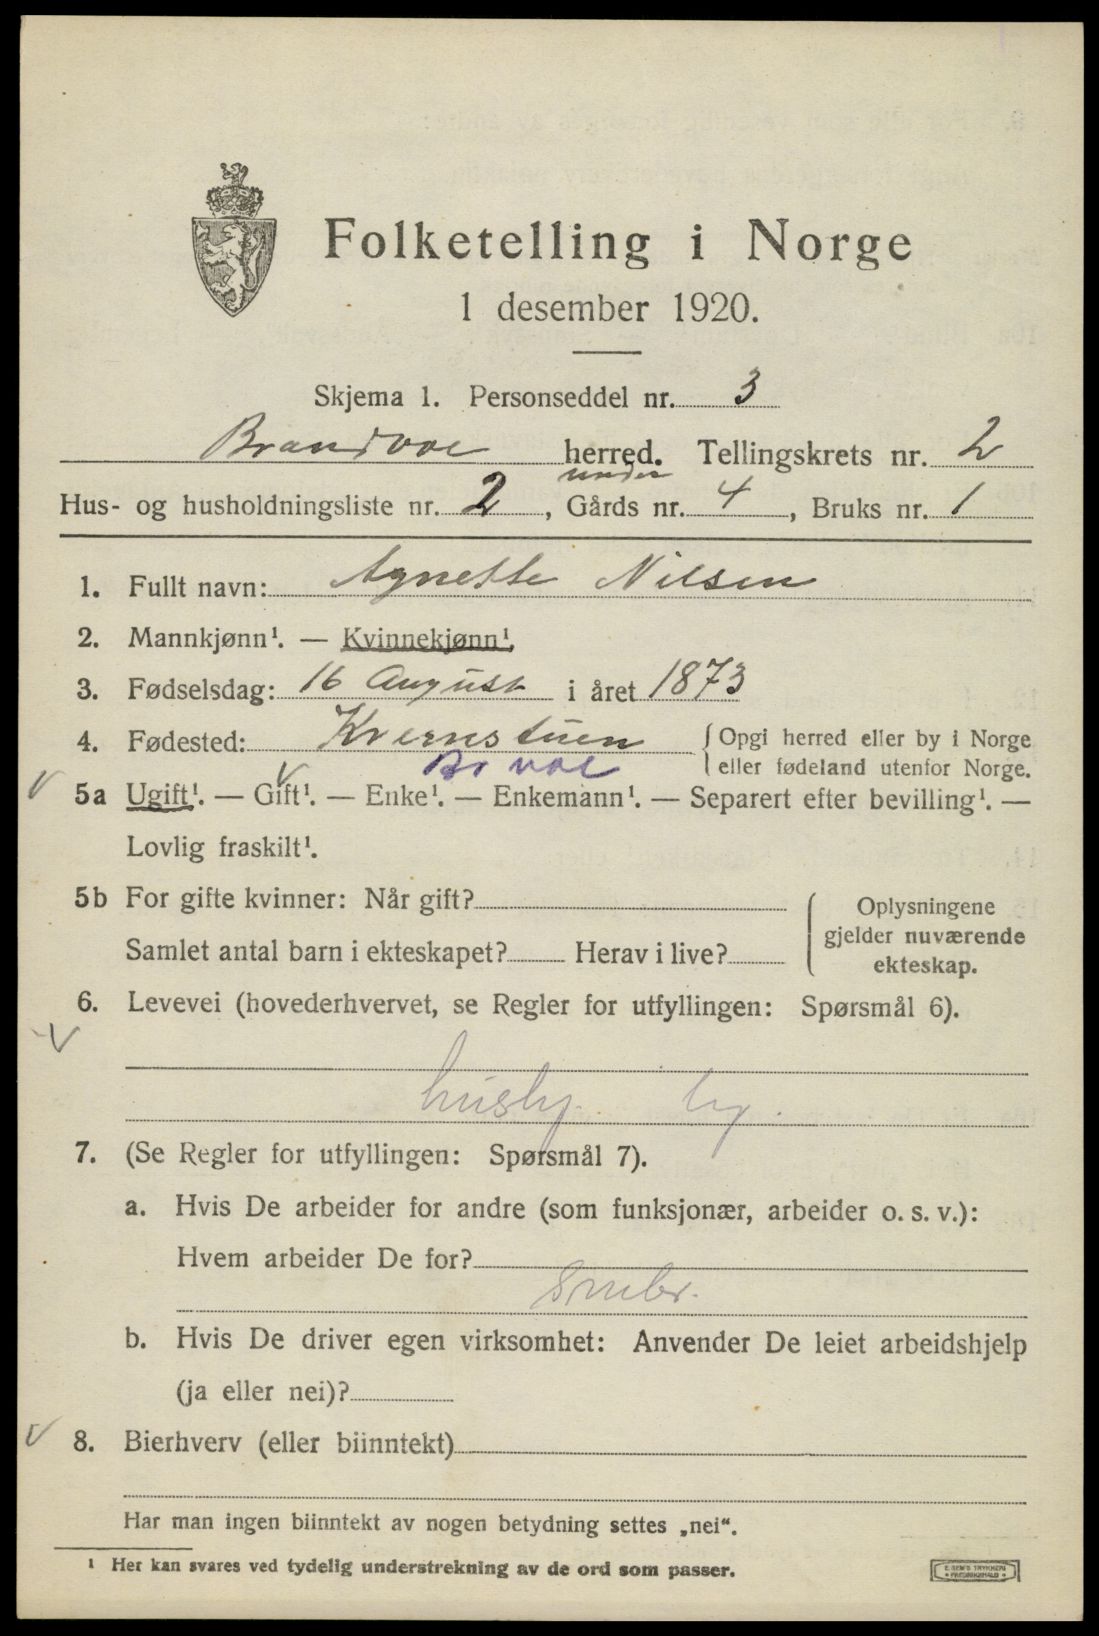 Folketelling i Norge
1 desember 1920.
Skjema 1. Personseddel nr. 3
Brandvoe herred. Tellingskrets nr. 2
under
Hus- og husholdningsliste nr. 2, Gårds nr. 4, Bruks nr. 1
1. Fullt navn: Agnette Nilsen
2. Mannkjønn¹. — Kvinnekjønn¹.
3. Fødselsdag: 16 August i året 1873
4. Fødested: Kvernstuen { Opgi herred eller by i Norge
eller fødeland utenfor Norge.
Br voe
5a Ugift¹. — Gift¹. — Enke¹. — Enkemann¹. — Separert efter bevilling¹. —
Lovlig fraskilt¹.
5b For gifte kvinner: Når gift?
Samlet antal barn i ekteskapet? Herav i live?
{ Oplysningene
gjelder nuværende
ekteskap.
6. Levevei (hovederhvervet, se Regler for utfyllingen: Spørsmål 6).
husby.
7. (Se Regler for utfyllingen: Spørsmål 7).
a. Hvis De arbeider for andre (som funksjonær, arbeider o. s. v.):
Hvem arbeider De for?
b. Hvis De driver egen virksomhet: Anvender De leiet arbeidshjelp
(ja eller nei)?
8. Bierhverv (eller biinntekt)
Har man ingen biinntekt av nogen betydning settes „nei“.
¹ Her kan svares ved tydelig understrekning av de ord som passer.